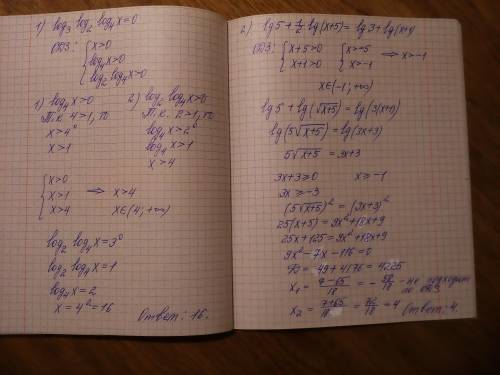 1) log₃ log₂ log₄ x = 0
ОДЗ: { x>0
log₄x>0
log₂ log₄x>0
1) log₄x>0
Т.к. 4>1, то
x>4⁰
x>1
2) log₂ log₄x>0
Т.к. 2>1, то
log₄x>2⁰
log₄x>1
x>4
{ x>0
x>1 ⇒ x>4
x>4 x∈(4; +∞)
log₂ log₄x=3⁰
log₂ log₄x=1
log₄x=2
x=4²=16
Ответ: 16.
2) lg5+½ lg(x+5)=lg3+lg(x+1)
ОДЗ: { x+5>0 { x>-5 ⇒ x>-1
x+1>0 x>-1
x∈(-1; +∞)
lg5+lg(√x+5)=lg(3(x+1))
lg(5√x+5)=lg(3x+3)
5√x+5 = 3x+3
3x+3≥0 x≥-1
3x≥-3
(5√x+5)²=(3x+3)²
25(x+5)=9x²+18x+9
25x+125=9x²+18x+9
9x²-7x-116=0
D=49+4176=4225
x₁=(7-65)/18=-58/18 - не подходит по ОДЗ
x₂=(7+65)/18=72/18=4 Ответ: 4.